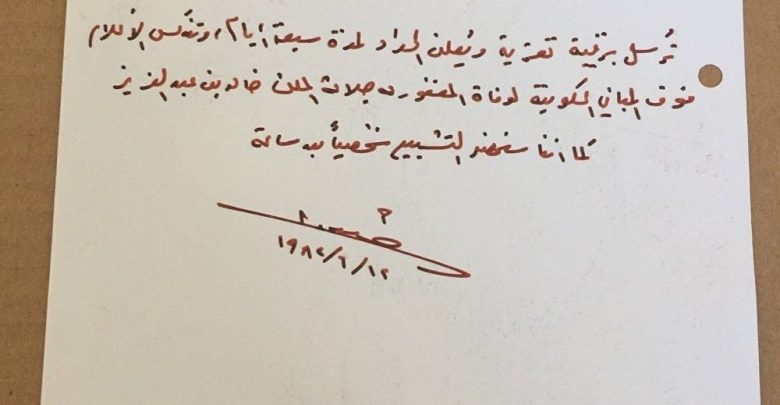 تُرسل برقية تعزية ويُعلن الحداد لمدة سبعة أيام، وتنكس الأعلام
فوق المباني الحكومية لوفاة المغفور له جلالة الملك خالد بن عبد العزيز
كما اننا سنحضر التشييع شخصياً
١٩٨٢/٦/١٢